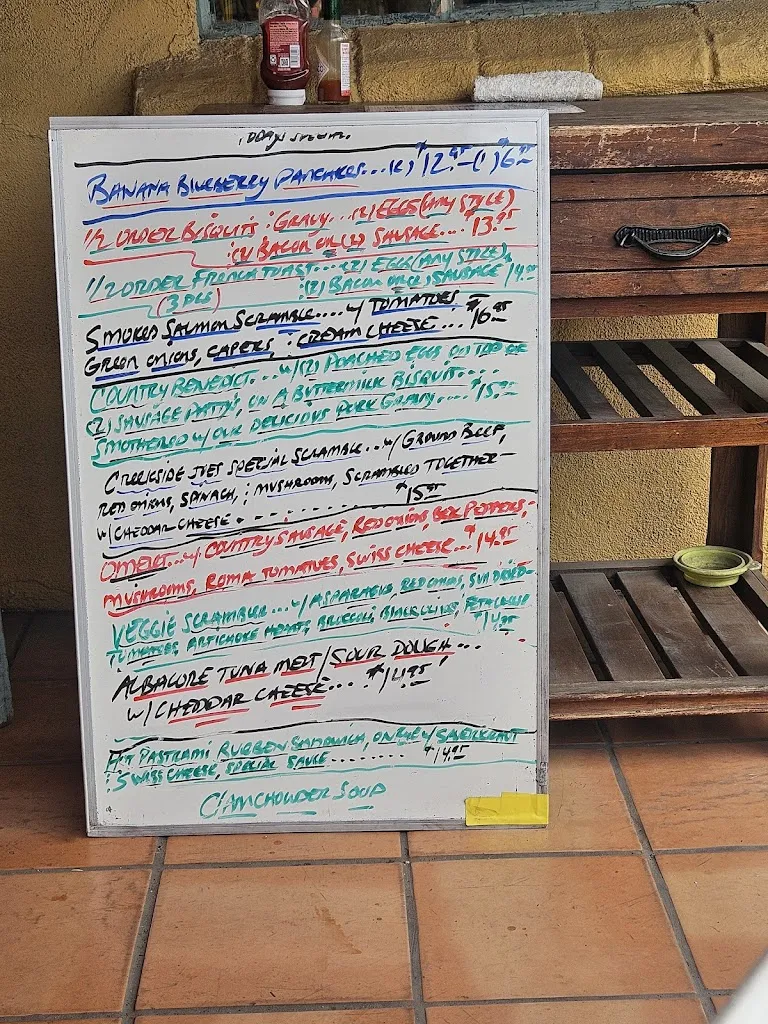 BANANA BLUEBERRY PANCAKES...(2) $12.95-(1) $6.95
1/2 ORDER BISCUITS : GRAVY...(2) EGGS (ANY STYLE)
:(2) BACON OR (2) SAUSAGE.... $13.95
1/2 ORDER FRENCH TOAST....(2) EGGS (ANY STYLE),
(3 PCS) :(2) BACON OR (2) SAUSAGE 14.95
SMOKED SALMON SCRAMBLE.... W/ TOMATOES
GREEN ONIONS, CAPERS, : CREAM CHEESE... $16.95
COUNTRY BENEDICT...W/(2) POACHED EGGS ON TOP OF
(2) SAUSAGE PATTY, ON A BUTTERMILK BISQUIT....
SMOTHERED W/ OUR DELICIOUS PORK GRAVY.... $15.95
CREEKSIDE JOE'S SPECIAL SCRAMBLE...W/ GROUND BEEF,
RED ONIONS, SPINACH, : MUSHROOMS, SCRAMBLED TOGETHER-
W/ CHEDDAR CHEESE......... $15.95
OMELET...W/ COUNTRY SAUSAGE, RED ONIONS, BELL PEPPERS,-
MUSHROOMS, ROMA TOMATOES, SWISS CHEESE... $14.95
VEGGIE SCRAMBLE...W/ ASPARAGUS, RED ONIONS, SUN DRIED-
TOMATOES, ARTICHOKE HEARTS, BROCCOLI, BLACK OLIVES, FETA CHEESE $14.95
ALBACORE TUNA MELT/SOUR DOUGH...
W/ CHEDDAR CHEESE... $14.95
HOT PASTRAMI RUEBEN SANDWICH, ON RYE W/ SAUERKRAUT
: SWISS CHEESE, SPECIAL SAUCE......... $14.95
CLAMCHOWDER SOUP